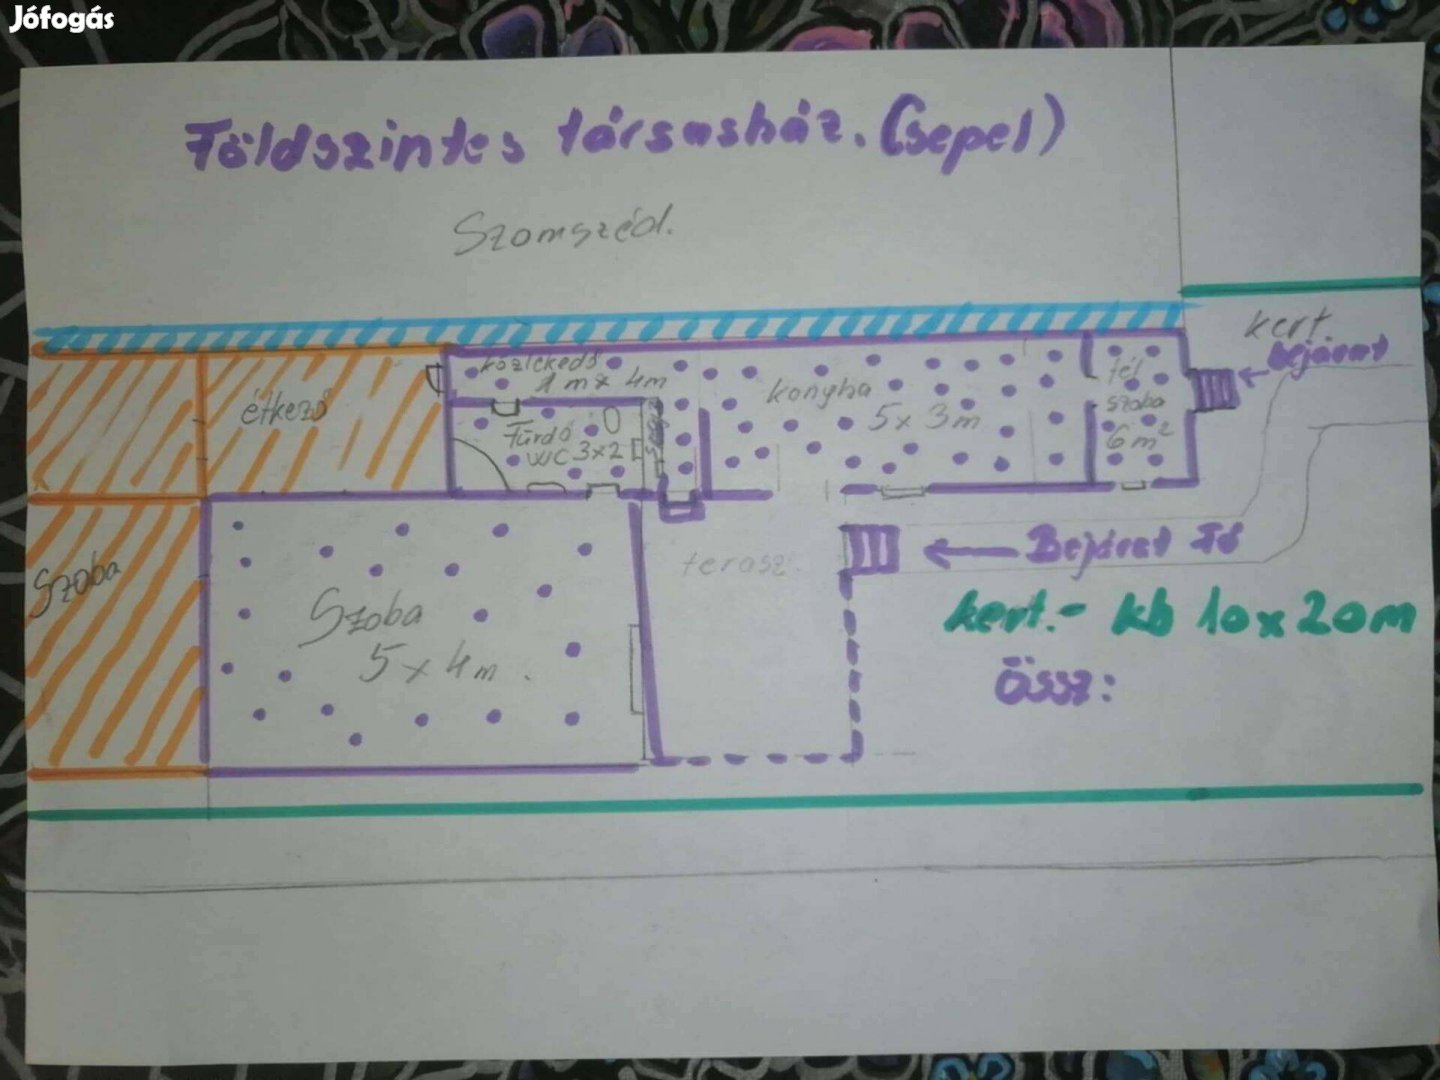 Jófogás
Földszintes társasház. (Csepel)
Szomszéd.
kert
Bejárat
közlekedő
1 m x 4m
étkező
konyha
5 x 3m
fél
szoba
6 m²
Fürdő
WC 3x2
Szoba
Szoba
5 x 4m.
terasz.
Bejárat Fő
kert.- kb 10x20m
Össz: